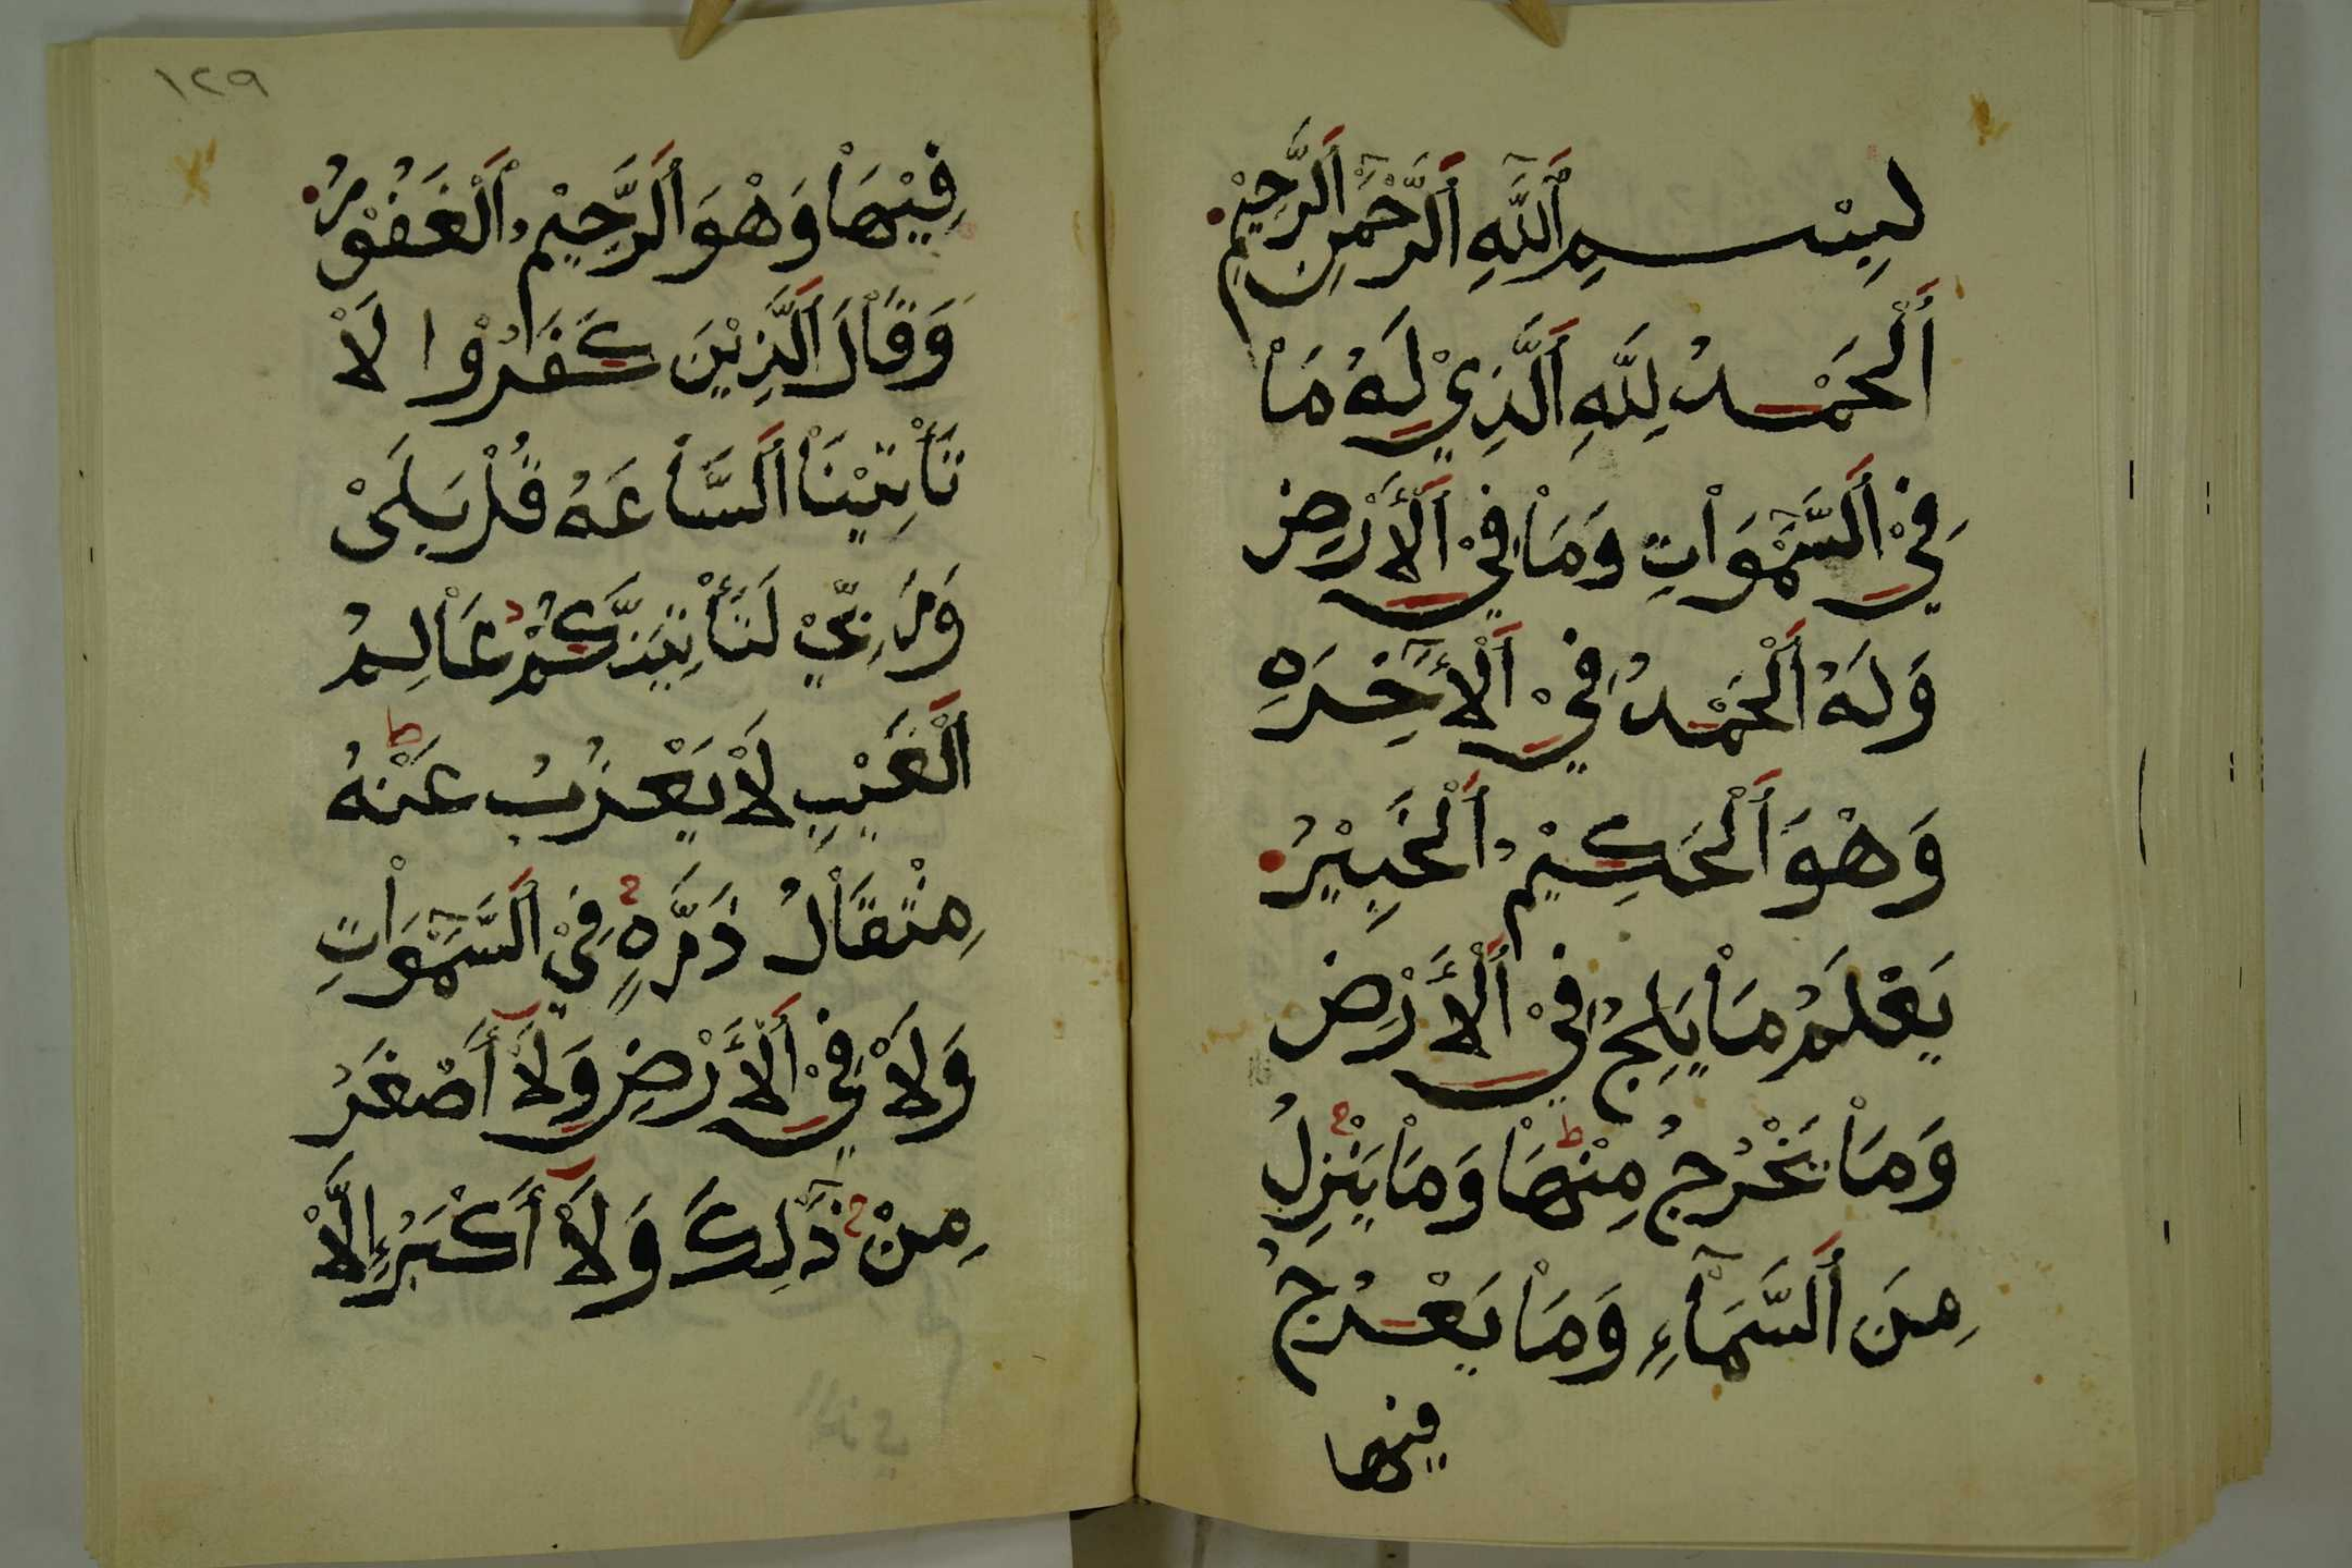 بِسْمِ اَللّٰهِ اَلرَّحْمٰنِ اَلرَّحِيْمِ
اَلْحَمْدُ لِلّٰهِ اَلَّذِيْ لَهُ مَاْ
فِيْ اَلسَّمٰوَاْتِ وَمَاْ فِيْ اَلْأَرْضِ
وَلَهُ اَلْحَمْدُ فِيْ اَلْأٓخِرَهِ
وَهْوَ اَلْحَكِيْمُ اَلْخَبِيْرُ
يَعْلَمُ مَاْ يَلِجُ فِيْ اَلْأَرْضِ
وَمَاْ يَخْرُجُ مِنْهَاْ وَمَاْ يَنْزِلُ
مِنَ اَلسَّمَاْءِ وَمَاْ يَعْرُجُ
فيها
١٢٩
فِيْهَاْ وَهْوَ اَلرَّحِيْمُ اَلْغَفُوْرُ
وَقَاْلَ اَلَّذِيْنَ كَفَرُوْا لَاْ
تَأْتِيْنَاْ اَلسَّاْعَهُ قُلْ بَلَىْ
وَرَبِّيْ لَتَأْتِيَنَّكُمْ عَاْلِمُ
اَلْغَيْبِ لَاْ يَعْزُبُ عَنْهُ
مِثْقَاْلُ ذَرَّهٍ فِيْ اَلسَّمٰوَاْتِ
وَلَاْ فِيْ اَلْأَرْضِ وَلَاْ أَصْغَرُ
مِنْ ذٰلِكَ وَلَاْ أَكْبَرُ إِلَّاْ